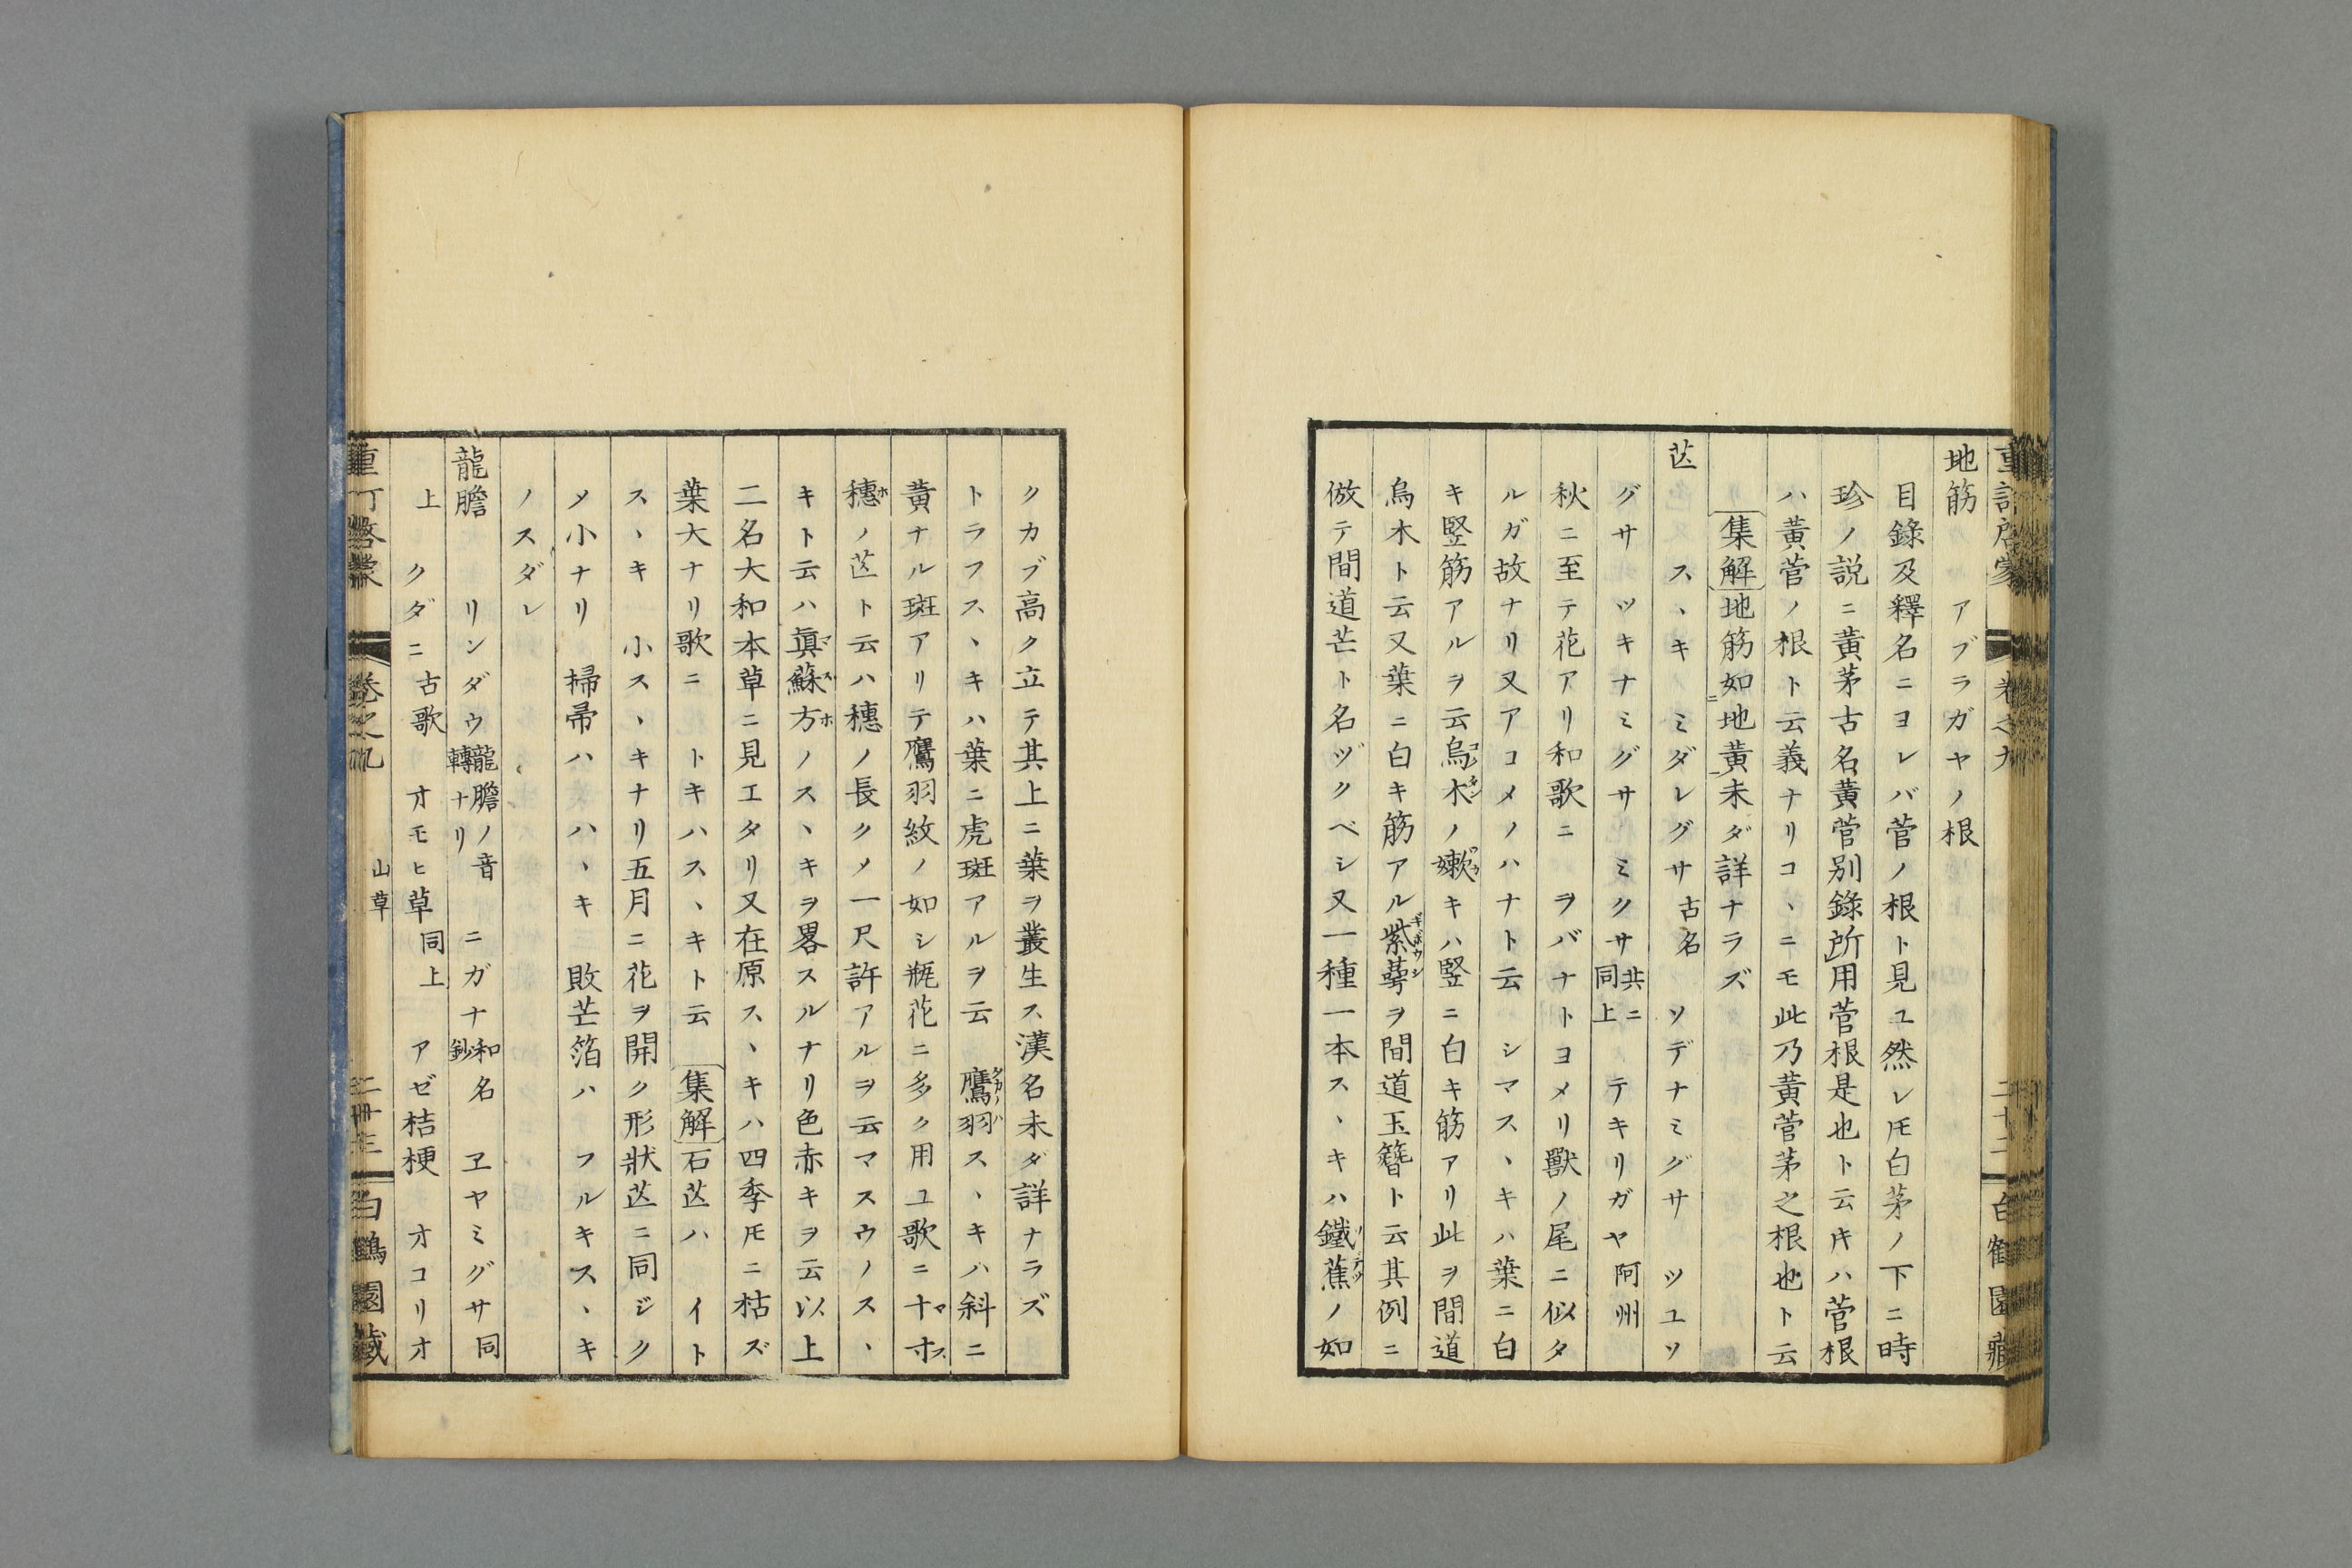 地筋　アブラガヤノ根
目錄及釋名ニヨレバ菅ノ根ト見ユ然レ𪜈白茅ノ下ニ時
珍ノ説ニ黃茅古名黃菅別錄所用菅根是也ト云𬼀ハ菅根
ハ黃菅ノ根ト云義ナリコヽニモ此乃黃菅茅之根也ト云
集解地筋如ニ地黃未ダ詳ナラズ
𦬆　スヽキ　ミダレグサ古名　ソデナミグサ　ツユソ
グサ　ツキナミグサ　ミクサ共ニ同上　テキリガヤ阿州
秋ニ至テ花アリ和歌ニ　ヲバナトヨメリ獸ノ尾ニ似タ
ルガ故ナリ又アコメノハナト云　シマスヽキハ葉ニ白
キ竪筋アルヲ云烏木ノ嫩キハ竪ニ白キ筋アリ此ヲ間道
烏木ト云又葉ニ白キ筋アル紫蕚ヲ間道玉簪ト云其例ニ
倣テ間道芒ト名ヅクベシ又一種一本スヽキハ鐵蕉ノ如
クカブ高ク立テ其上ニ葉ヲ叢生ス漢名未ダ詳ナラズ
トラフスヽキハ葉ニ虎斑アルヲ云　鷹羽スヽキハ斜ニ
黃ナル斑アリテ鷹羽紋ノ如シ瓶花ニ多ク用ユ歌ニ十寸
穗ノ𦬆ト云ハ穗ノ長クメ一尺許アルヲ云マスウノスヽ
キト云ハ眞蘇方ノスヽキヲ畧スルナリ色赤キヲ云以上
二名大和本草ニ見エタリ又在原スヽキハ四季𪜈ニ枯ズ
葉大ナリ歌ニ　トキハスヽキト云　集解石𦬆ハ　イト
スヽキ　小スヽキナリ五月ニ花ヲ開ク形狀𦬆ニ同ジク
メ小ナリ　掃帚ハ　ハヽキ　敗芒箔ハ　フルキスヽキ
ノスダレ
龍膽　リンダウ龍膽ノ音轉ナリ　ニガナ和名鈔　ヱヤミグサ同
上　クダニ古歌　オモヒ草同上　アゼ桔梗　オコリオ
山草
白鶴園藏